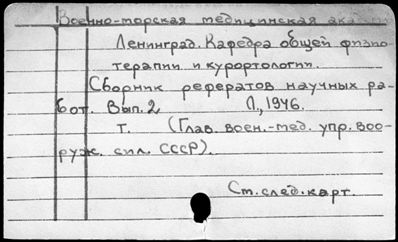 Военно-морская медицинская ака
Ленинград. Кафедра общей физио-
терапии и курортологии.
Сборник рефератов научных ра-
бот. Вып. 2 Л., 1946.
т. (Глав. воен.-мед. упр. воо-
руж. сил. СССР).
Ст. след. карт.